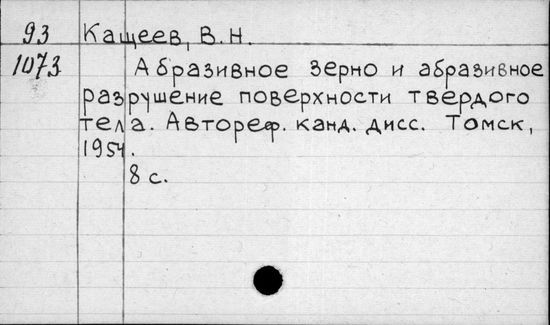 93 Кащеев, В.Н.
1073 Абразивное зерно и абразивное
разрушение поверхности твердого
тела. Автореф. канд. дисс. Томск,
1954.
8 с.